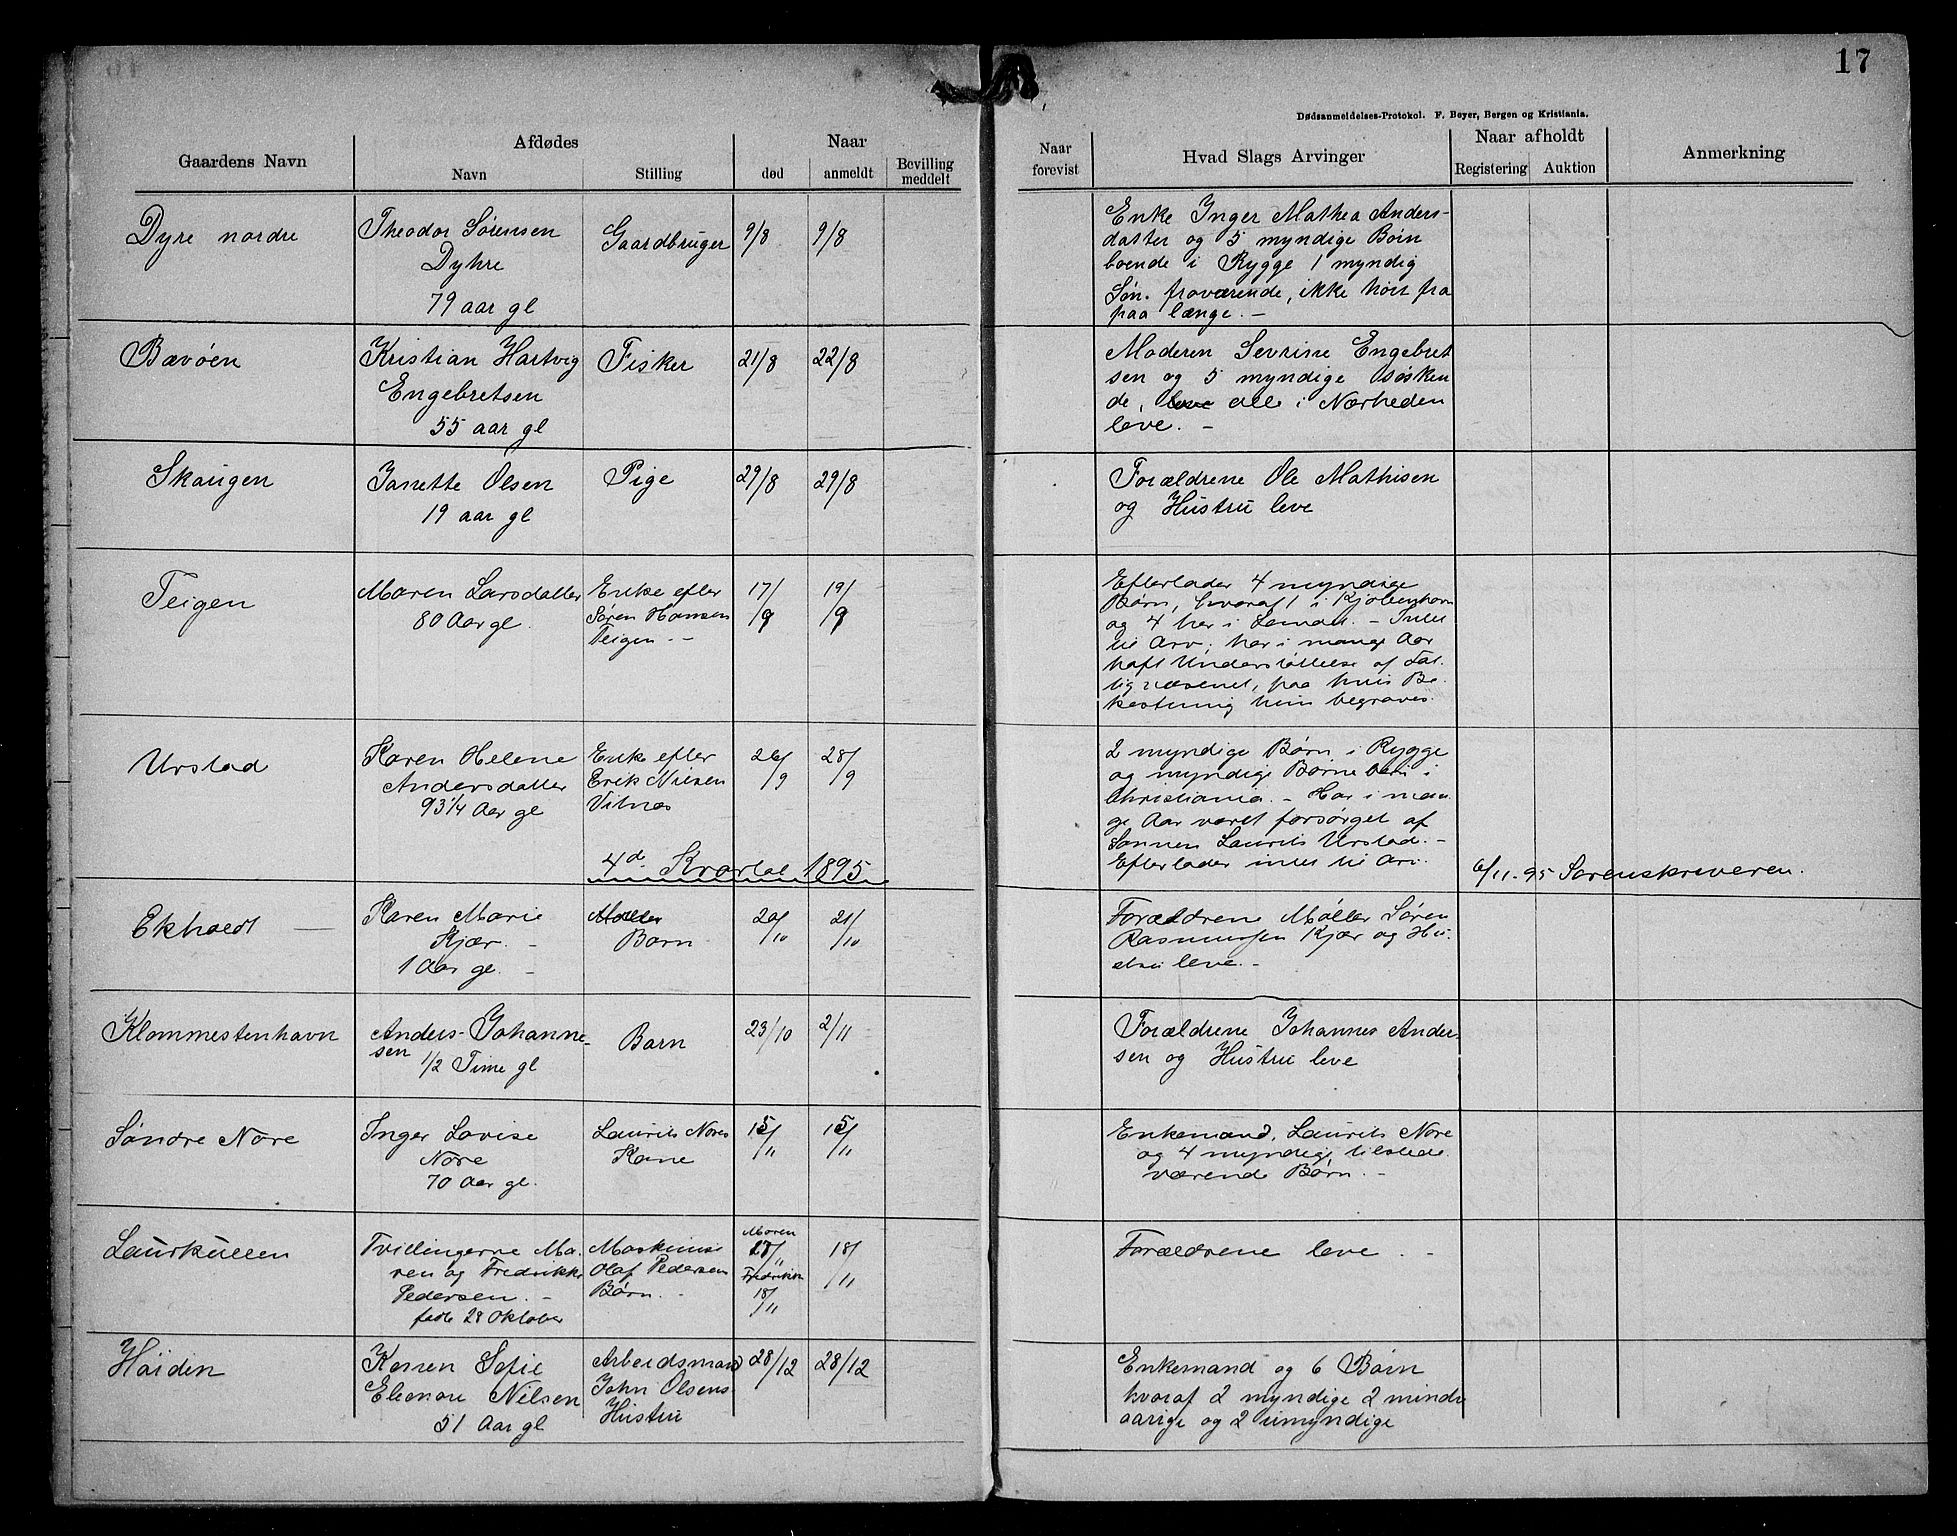 17
Dødsanmeldelses-Protokol. F. Beyer, Bergen og Kristiania.
Gaardens Navn
Afdødes
Navn
Stilling
Naar
død
anmeldt
Bevilling
meddelt
Naar
forevist
Hvad Slags Arvinger
Naar afholdt
Registering
Auktion
Anmerkning
Dyre nordre
Theodor Sørensen
Dyhre
79 aar gl
Gaardbruger
9/8
9/8
Enke Inger Mathea Anders-
datter og 5 myndige Børn
boende i Rygge 1 myndig
Søn. fraværende, ikke hørt fra
paa længe. -
Bævøen
Kristian Hartvig
Engebretsen
55 aar gl
Fisker
21/8
22/8
Moderen Sevrine Engebret
sen og 5 myndige søsken
de, leve alle i Nærheden
leve. -
Skaugen
Janette Olsen
19 aar gl
Pige
29/8
29/8
Forældrene Ole Mathisen
og Hustru leve
Teigen
Maren Larsdatter
80 Aar gl.
Enke efter
Søren Hansen
Teigen -
17/9
19/9
Efterlader 4 myndige
Børn, hvoraf 1 i Kjøbenhavn
og 4 her i Landet. - Intet
til Arv; har i mange Aar
haft Understøttelse af Fat.
tigvæsenet, paa hvis Be.
kostning hun begraves.
Urstad
Karen Helene
Andersdatter
93 1/4 Aar gl
Enke efter
Erik Nilsen
Vilnæs
26/9
28/9
2 myndige Børn i Rygge
og myndige Børnebørn i
Christiania. - Har i man.
ge Aar været forsørget af
Sønnen Laurits Urstad. -
Efterlader intet til Arv.
4d Kvartal 1895
6/11-95 Sorenskriveren.
Ekholdt
Karen Marie
Kjær. -
1 Aar gl. -
Møller
Barn
20/10
21/10
Forældrene Møller Søren
Rasmussen Kjær og Hu.
stru leve. -
Klommestenhavn
Anders Johanne-
sen
1/2 Time gl
Barn
23/10
2/11
Forældrene Johannes Ander-
sen og Hustru leve
Søndre Nore
Inger Lovise
Nore
70 Aar gl.
Laurits Nores
Kone
15/11
15/11
Enkemand, Laurits Nore
og 4 myndige, tilstede.
værende Børn. -
Laurkullen
Tvillingerne Ma.
ren og Fredrikke
Pedersen. -
født 28 Oktober
Maskinist
Olaf Pedersen
Børn. -
Maren
17/11
Fredrikke
18/11
18/11
Forældrene leve. -
Høiden
Karen Sofie
Eleonore Nilsen
51 Aar gl
Arbeidsmand
John Olsens
Hustru
28/12
28/12
Enkemand og 6 Børn
hvoraf 2 myndige 2 mindre
aarige og 2 umyndige